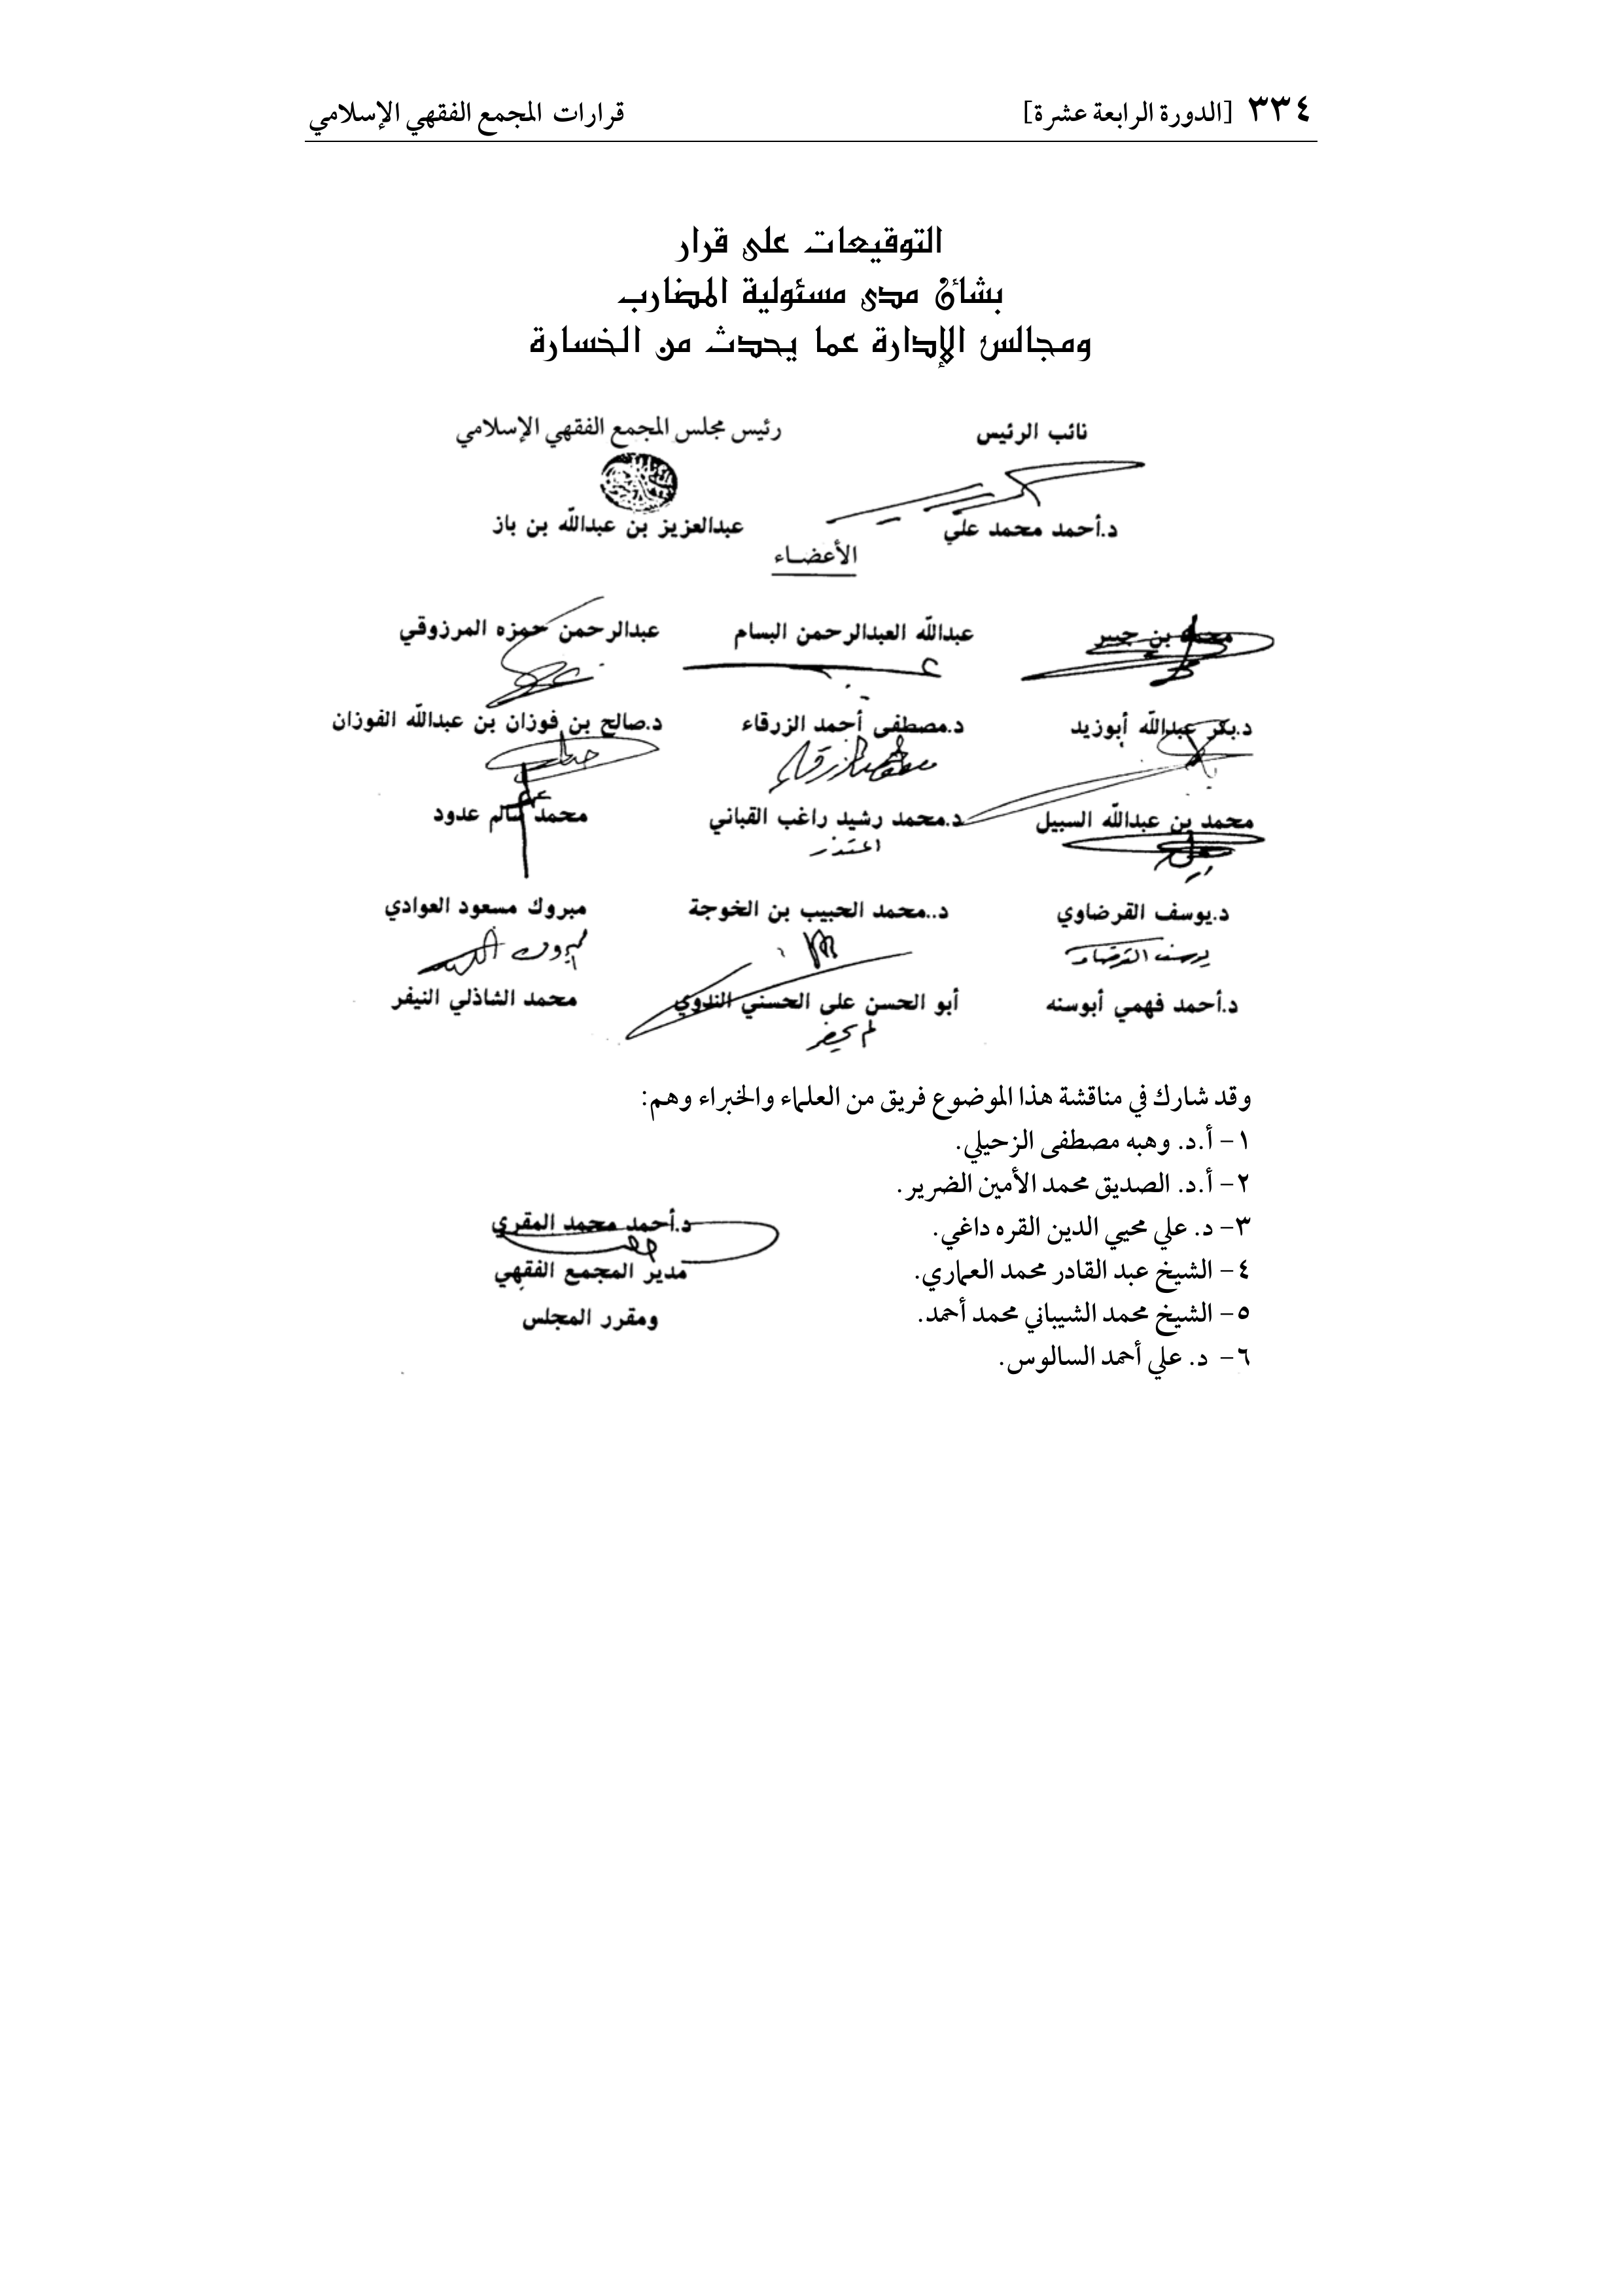 ٣٣٤ [الدورة الرابعة عشرة] قرارات المجمع الفقهي الإسلامي
التوقيعات على قرار
بشأن مدى مسئولية المضارب
ومجالس الإدارة عما يحدث من الخسارة
نائب الرئيس رئيس مجلس المجمع الفقهي الإسلامي
د.أحمد محمد علي عبدالعزيز بن عبدالله بن باز
الأعضاء
محمد بن جبير عبدالله العبدالرحمن البسام عبدالرحمن حمزه المرزوقي
د.بكر عبدالله أبوزيد د.مصطفى أحمد الزرقاء د.صالح بن فوزان بن عبدالله الفوزان
مصطفى أحمد الزرقاء
محمد بن عبدالله السبيل د.محمد رشيد راغب القباني محمد سالم عدود
اعتذر
د.يوسف القرضاوي د..محمد الحبيب بن الخوجة مبروك مسعود العوادي
يوسف القرضاوي مبروك
د.أحمد فهمي أبوسنه أبو الحسن على الحسني الندوي محمد الشاذلي النيفر
لم يحضر
وقد شارك في مناقشة هذا الموضوع فريق من العلماء والخبراء وهم:
١- أ.د. وهبه مصطفى الزحيلي.
٢- أ.د. الصديق محمد الأمين الضرير.
٣- د. علي محيي الدين القره داغي.
٤- الشيخ عبد القادر محمد العماري.
٥- الشيخ محمد الشيباني محمد أحمد.
٦- د. علي أحمد السالوس.
د.أحمد محمد المقري
مدير المجمع الفقهي
ومقرر المجلس